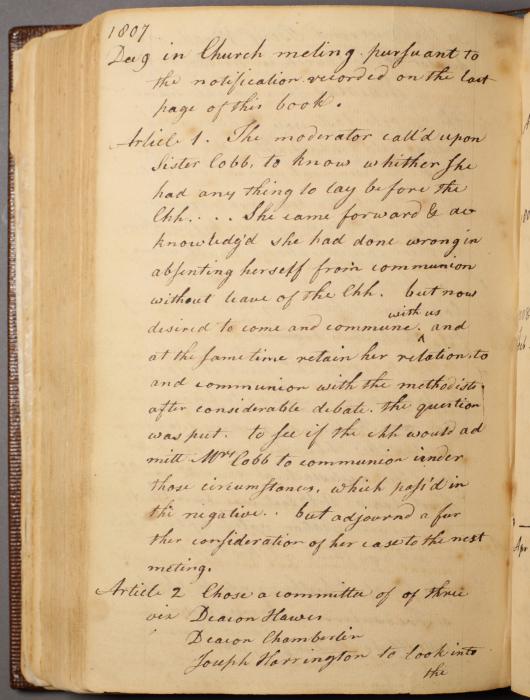 1807
Dec 9 in Church meting pursuant to
the notification recorded on the last
page of this book.
Article 1. The moderator call'd upon
Sister Cobb, to know whither she
had any thing to lay before the
Chh. . . . She came forward & ac
knowledg'd she had done wrong in
absenting herself from communion
without leave of the Chh. but now
with us
desired to come and commune ^ and
at the same time retain her relation to
and communion with the methodists
after considerable debate. the question
was put. to see if the chh would ad
mitt Mrs Cobb to communion under
those circumstances, which pass'd in
the negative . . but adjournd a fur
ther consideration of her case to the next
meting.
Article 2 Chose a committee of of three
viz Deacon Hawes
Deacon Chamberlin
Joseph Harrington to look into
the
Apr